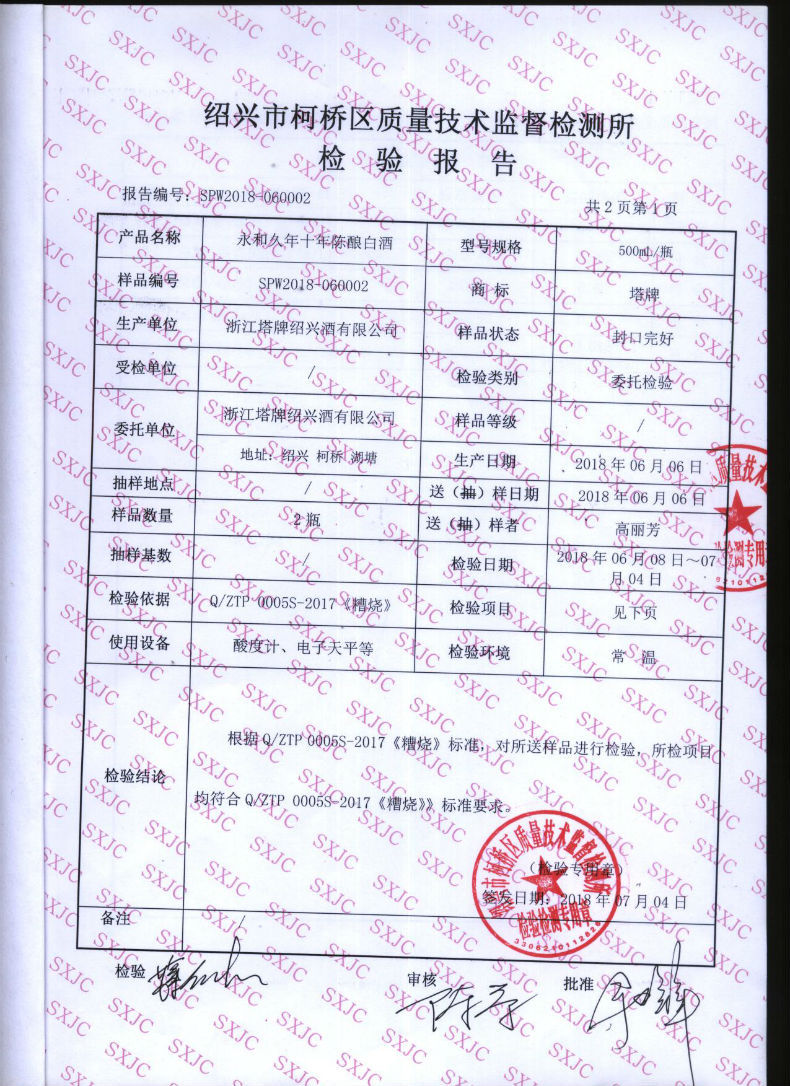 绍兴市柯桥区质量技术监督检测所
检 验 报 告
报告编号：SPW2018-060002
共 2 页第 1 页
产品名称 永和久年十年陈酿白酒 型号规格 500mL/瓶
样品编号 SPW2018-060002 商 标 塔牌
生产单位 浙江塔牌绍兴酒有限公司 样品状态 封口完好
受检单位 / 检验类别 委托检验
委托单位 浙江塔牌绍兴酒有限公司 样品等级 /
地址：绍兴 柯桥 湖塘 生产日期 2018 年 06 月 06 日
抽样地点 / 送（抽）样日期 2018 年 06 月 06 日
样品数量 2 瓶 送（抽）样者 高丽芳
抽样基数 / 检验日期 2018 年 06 月 08 日～07
月 04 日
检验依据 Q/ZTP 0005S-2017《糟烧》 检验项目 见下页
使用设备 酸度计、电子天平等 检验环境 常 温
检验结论
根据 Q/ZTP 0005S-2017《糟烧》标准，对所送样品进行检验，所检项目
均符合 Q/ZTP 0005S-2017《糟烧》》标准要求。
（检验专用章）
签发日期：2018 年 07 月 04 日
备注 /
检验
审核
批准
质量技术
检测专用
绍兴市柯桥区质量技术监督检测所
检验检测专用章
SXJC